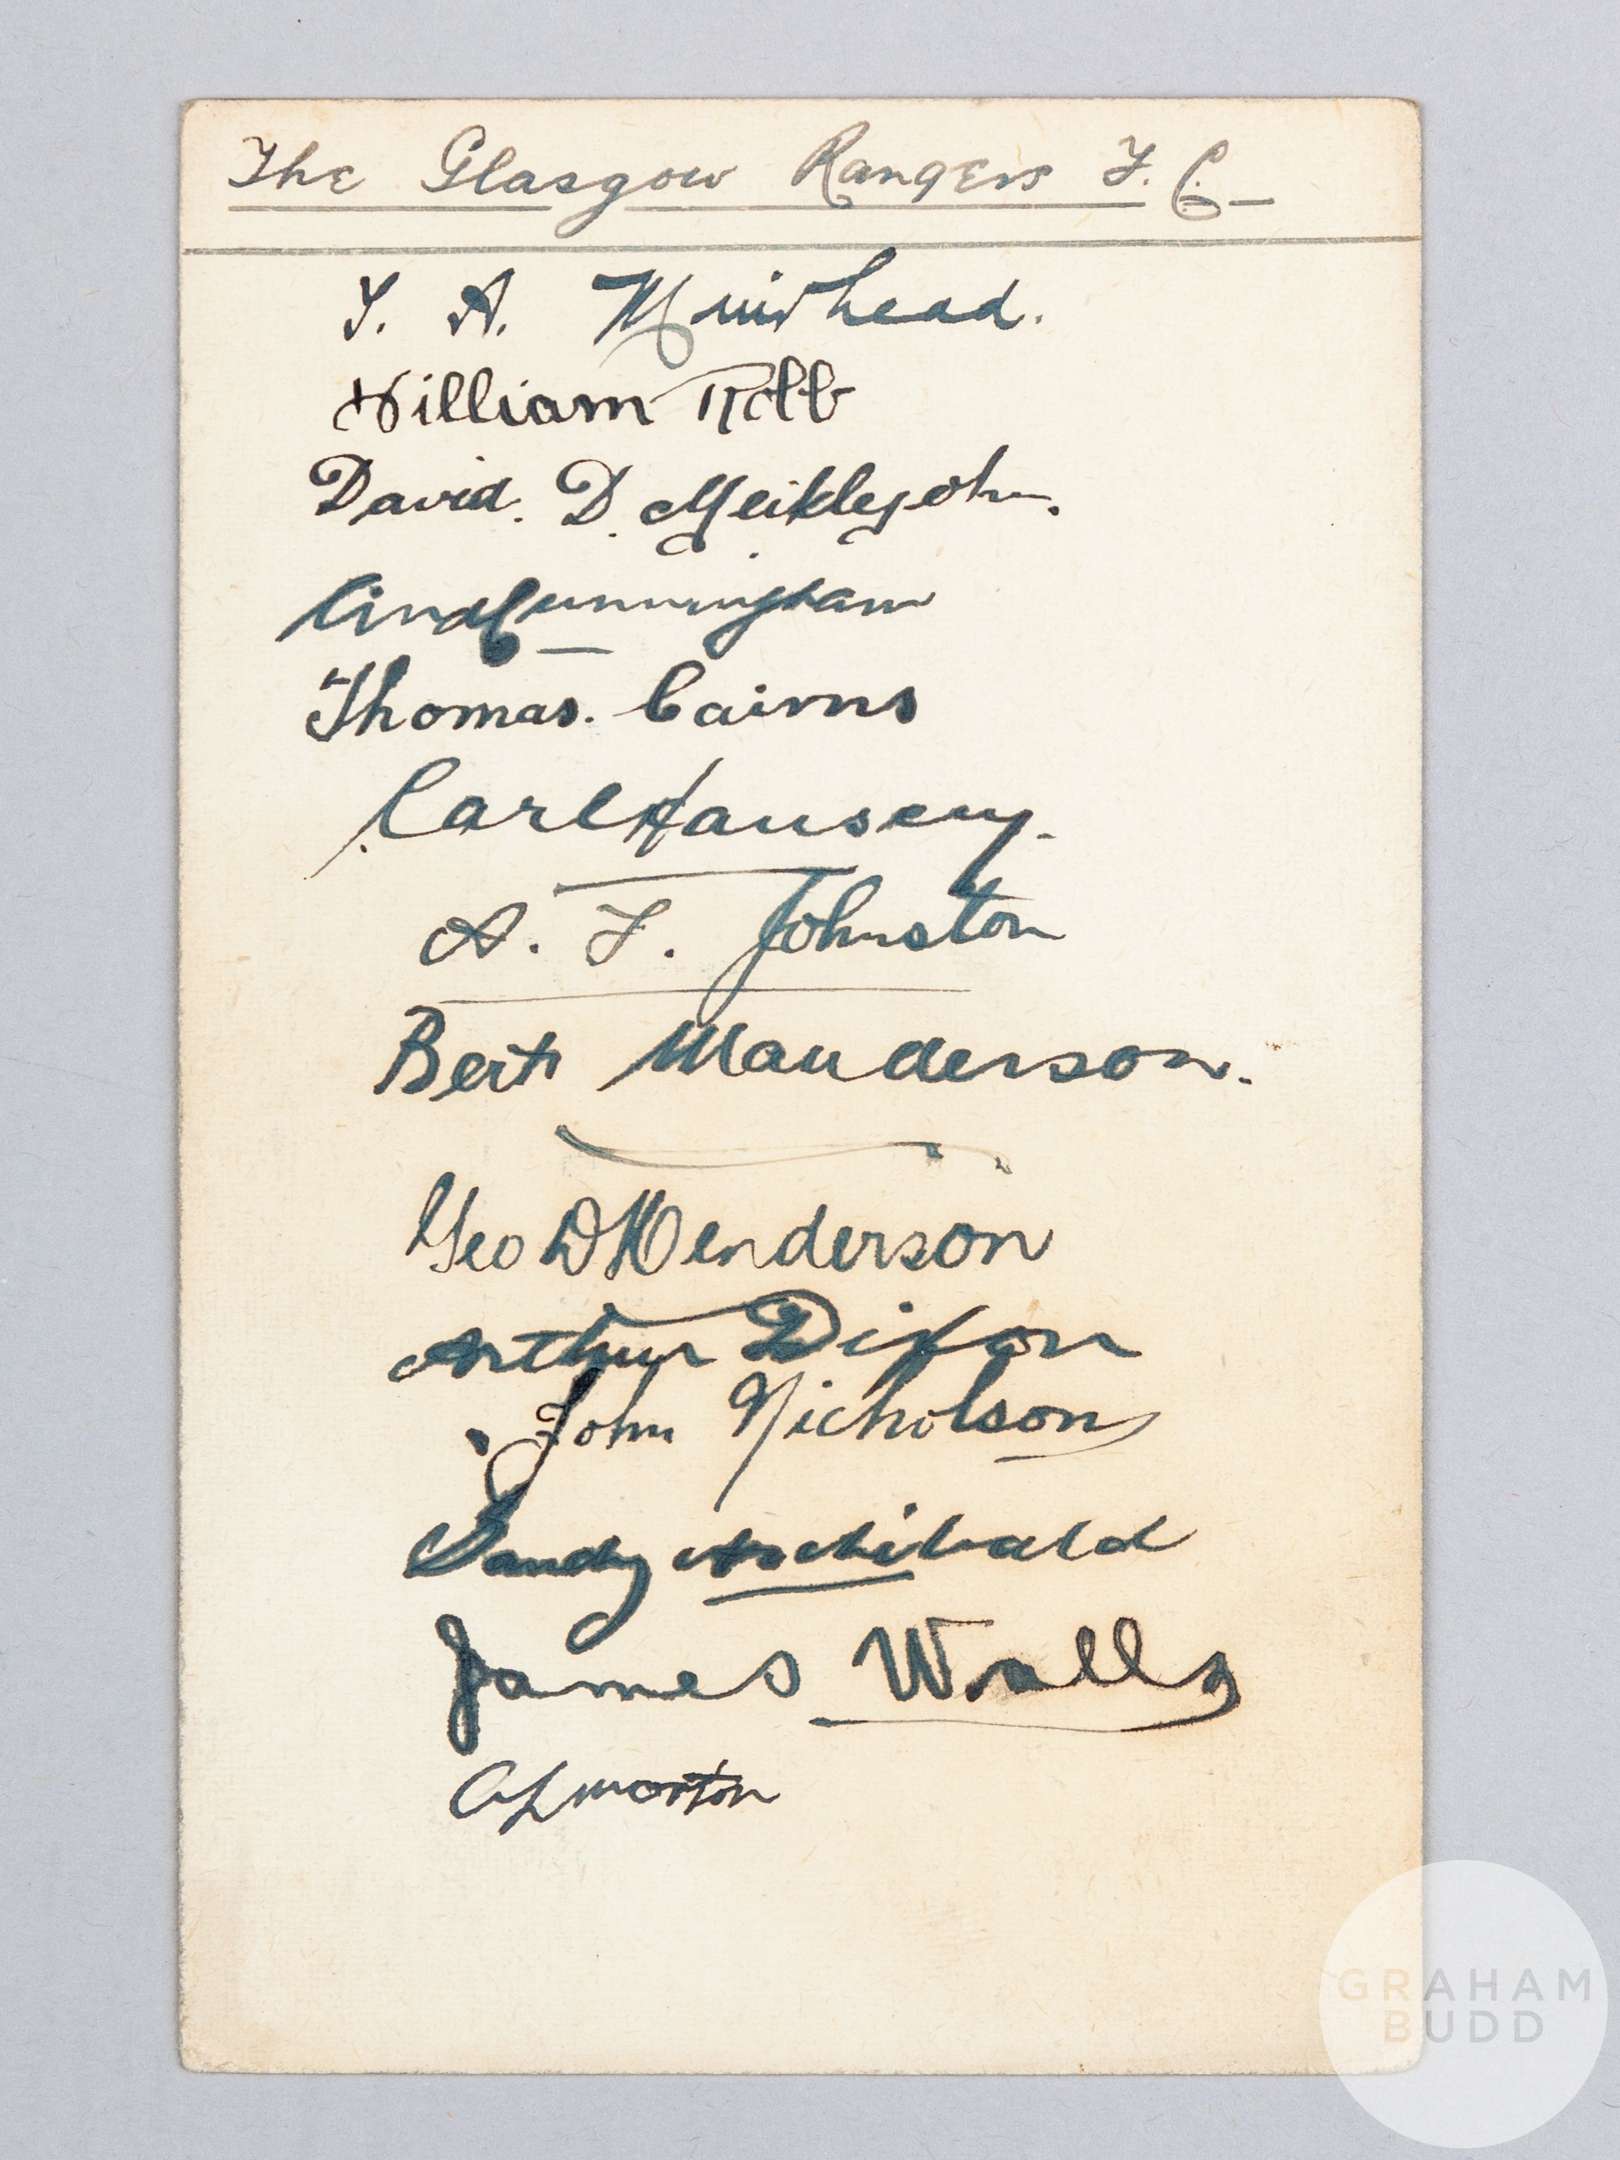 The Glasgow Rangers F.C.
T. A. Muirhead.
William Robb
David. D. Meiklejohn.
And Cunningham
Thomas. Cairns
Carl Hansen.
A. F. Johnston
Bert Manderson.
Geo D Henderson
Arthur Dixon
John Nicholson
Sandy Archibald
James Walls
A L Morton
GRAHAM
BUDD